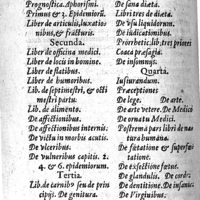 Prognostica. Aphorismi.
Primus & 3. Epidemiorũ.
Liber de articulis, luxatio
nibus, & fracturis.
Secunda.
Liber de officina medici.
Liber de locis in homine.
Liber de flatibus.
Liber de humoribus.
Lib. de septimestri, & octi
mestri partu:
Lib. de alimento.
De affectionibus.
De affectionibus internis:
De victu in morbis acutis
De vlceribus.
De vulneribus capitis. 2.
4. & 6. epidemiorum.
Tertia.
Lib. de carnib9 seu de prin
cipij. De genitura.
De sana diæta.
Libri tres de diæta.
De vsu liquidorum.
De iudicationibus.
Prorrhetic. lib. tres priores
Coaca præsagia.
De insomnijs.
Quarta.
Iusiurandum.
Præceptiones
De lege. De arte.
De arte vetere. De Medico
De ornatu Medici.
Postrema pars libri de na
tura humana.
De fœtatione & superfœ
tatione:
De exsectione fœtus.
De glandulis. De corde:
De dentitione. De insania:
De Virginibus.